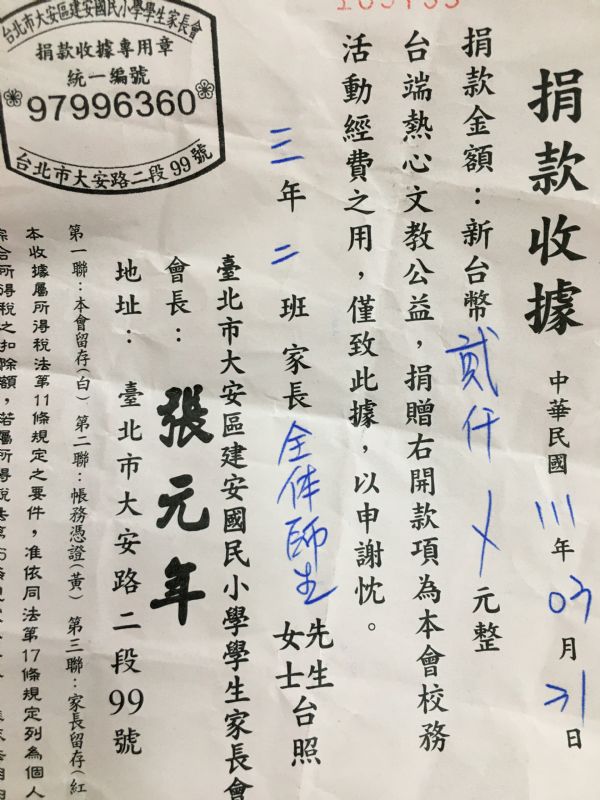 捐款收據 中華民國 111 年 03 月 31 日
捐款金額：新台幣 貳仟 元整
台端熱心文教公益，捐贈右開款項為本會校務
活動經費之用，僅致此據，以申謝忱。
三年二班家長 全体師生 先生女士台照
臺北市大安區建安國民小學學生家長會
會長：張元年
地址：臺北市大安路二段99號
第一聯：本會留存(白) 第二聯：帳務憑證(黃) 第三聯：家長留存(紅
本收據屬所得稅法第11條規定之要件，准依同法第17條規定列為個人
綜合所得稅之扣除額，若屬所得稅法第
台北市大安區建安國民小學學生家長會
捐款收據專用章
統一編號
97996360
台北市大安路二段99號